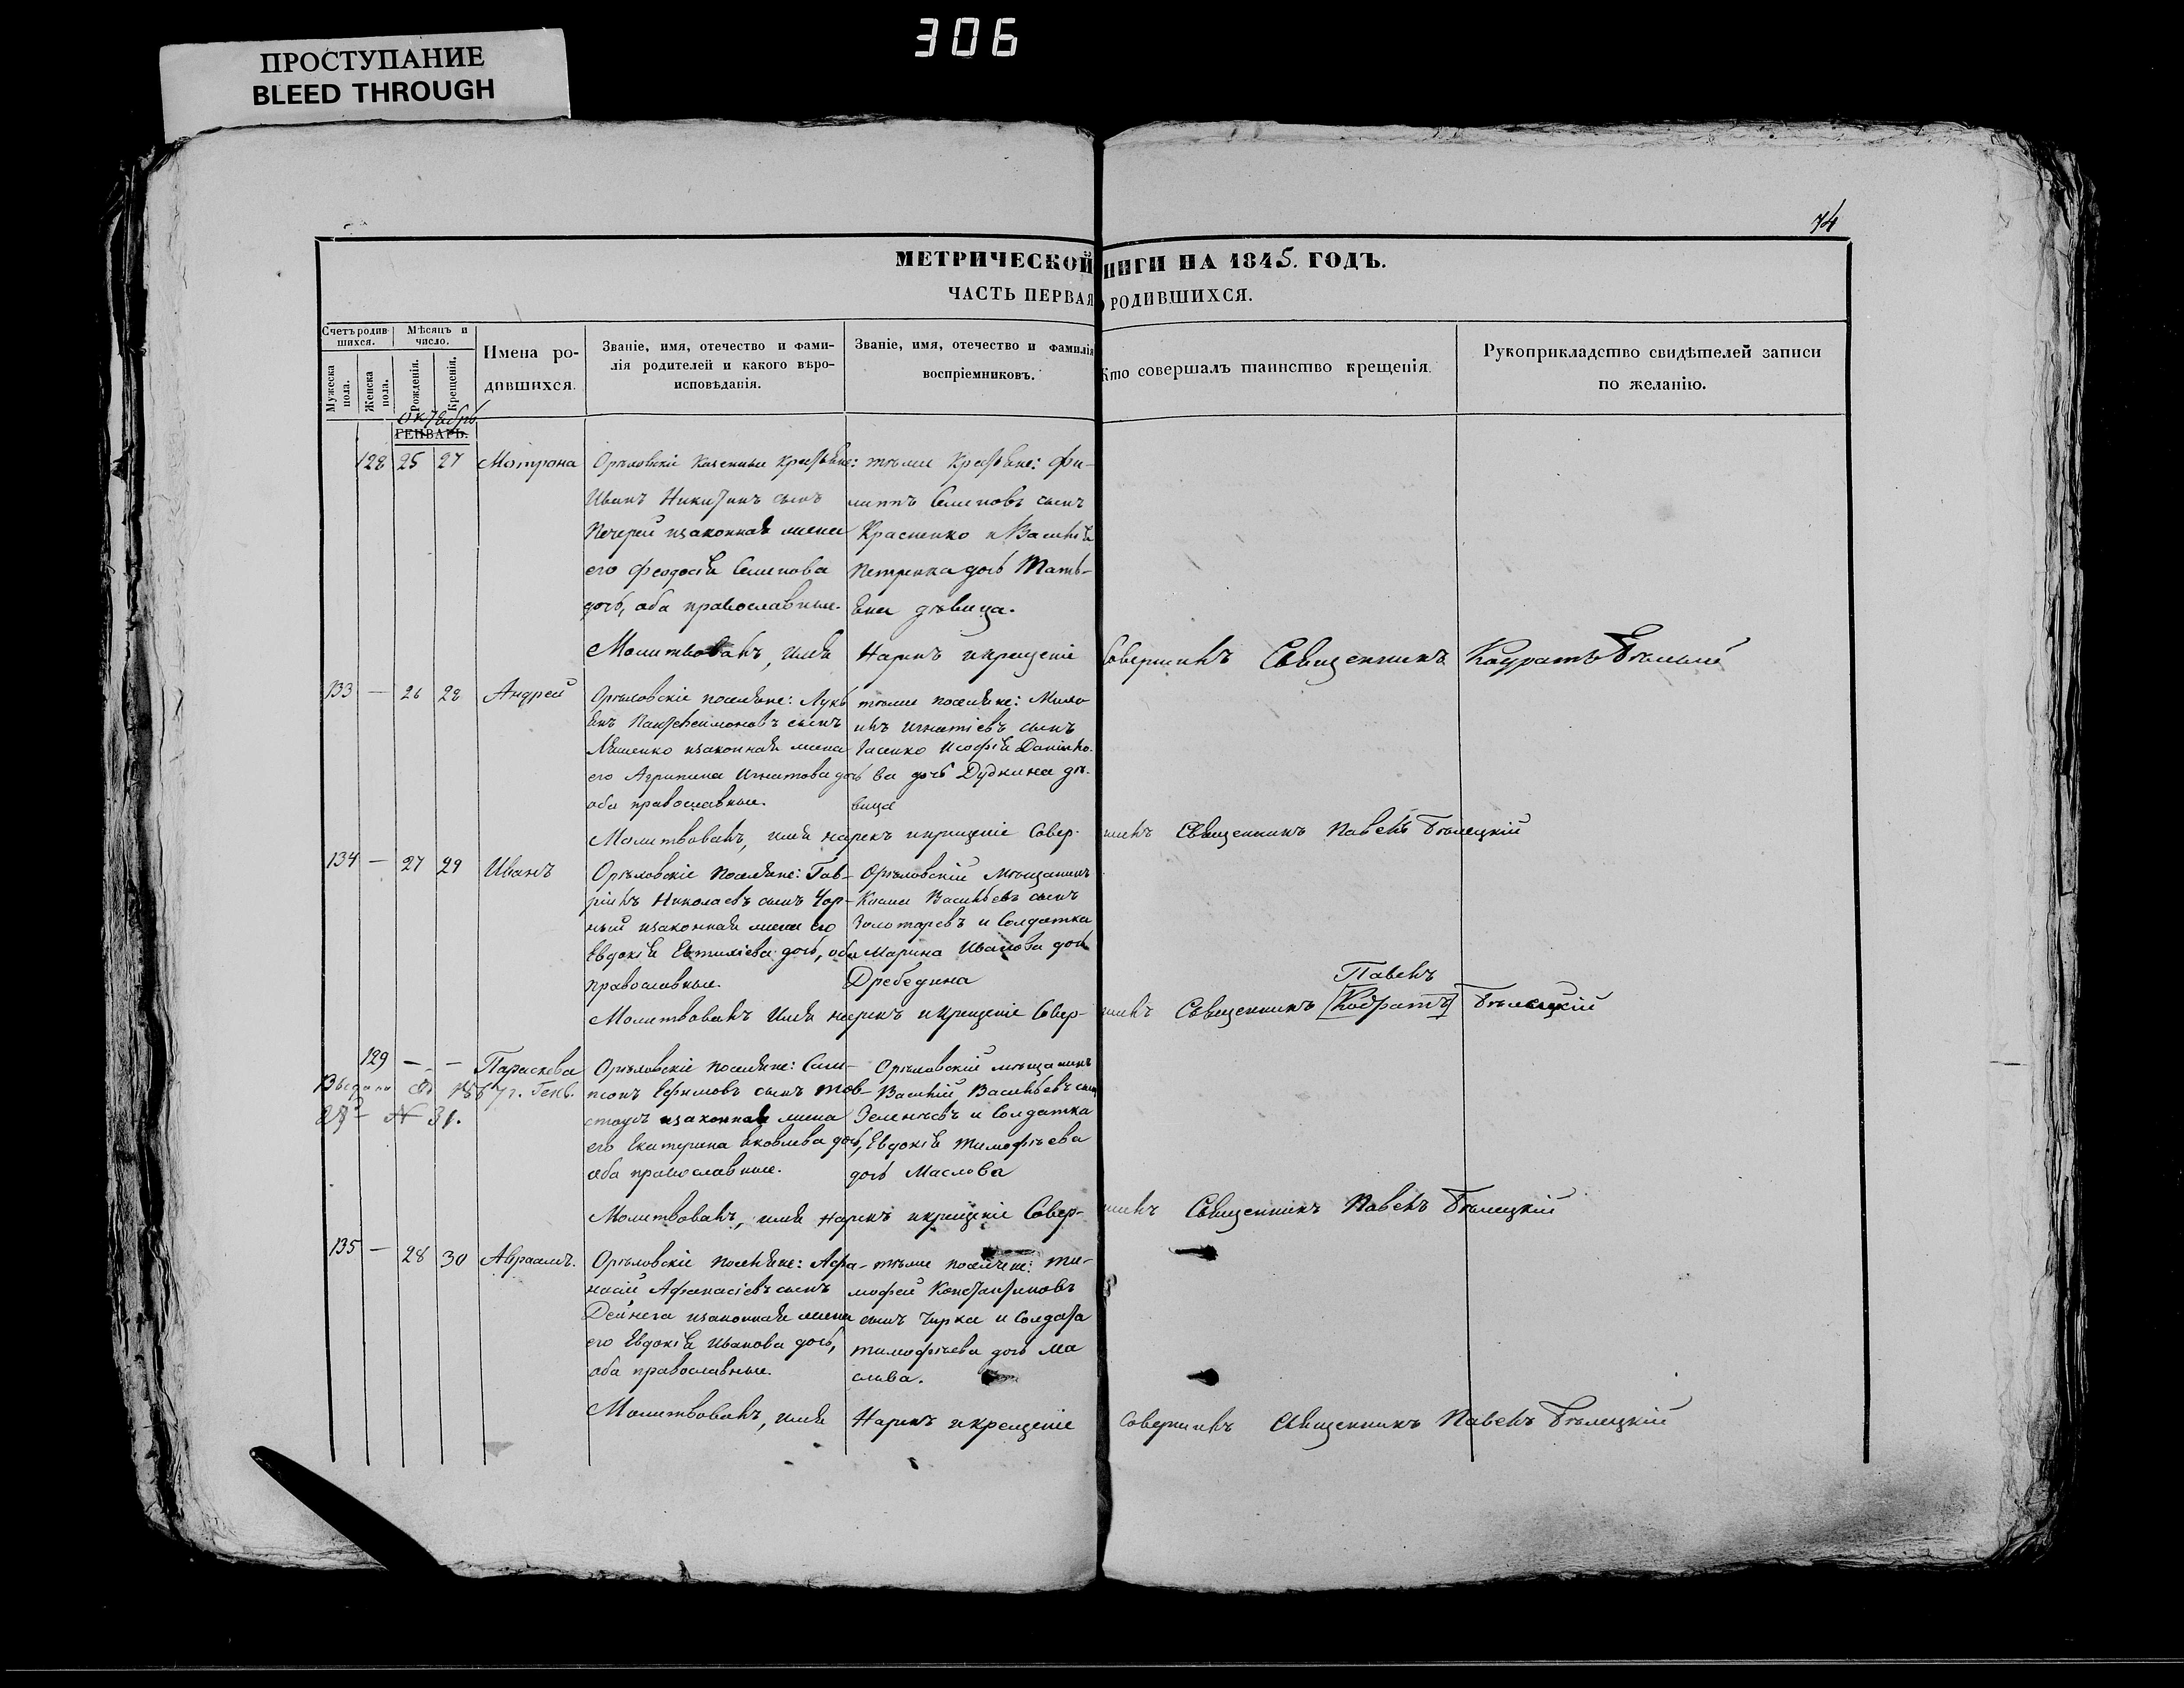 306
ПРОСТУПАНИЕ
BLEED THROUGH
74
МЕТРИЧЕСКОЙ НИГИ НА 1845. ГОДЪ.
ЧАСТЬ ПЕРВАЯ О РОДИВШИХСЯ.
Счетъ родившихся.
Мужеска пола.
Женска пола.
Мѣсяцъ и число.
Рожденія.
Крещенія.
Имена родившихся.
Званіе, имя, отечество и фамилія родителей и какого вѣроисповѣданія.
Званіе, имя, отечество и фамилія воспріемниковъ.
Кто совершалъ таинство крещенія.
Рукоприкладство свидѣтелей записи по желанію.
Октябрь
ГЕНВАРЬ.
128 25 27 Мотрона
Орѣловскіе Казенные Крестьяне:
Иванъ Никитинъ сынъ
Печерей изаконная жена
его Феодосія Семенова
дочь, оба православные.
тѣже Крестьяне: Фи-
липпъ Семеновъ сынъ
Красненко и Василія
Петренка дочь Тать-
яна дѣвица.
Молитвовалъ, имя Нарекъ икрещеніе Совершилъ Священникъ Кодратъ
133 — 26 28 Андрей
Орѣловскіе поселяне: Лукь
янъ Пантелеимоновъ сынъ
Ляшенко изаконная жена
его Агрипина Игнатова дочь
оба православные.
тѣже поселяне:
Игнатіевъ сынъ
исофія Данило-
ва дочь Дудкина дѣ-
вица
Молитвовалъ, имя нарекъ икрещеніе Совершилъ Священникъ Павелъ Бѣлецкій
134 — 27 29 Иванъ
Орѣловскіе Поселяне: Гав-
ріилъ Николаевъ сынъ Чор-
ный изаконная жена его
Евдокія Евтихіева дочь, оба
православные.
Орѣловскій Мѣщанинъ
Козма Васильевъ сынъ
Золотаревъ и Солдатка
Марина Иванова дочь
Дребедина
Павелъ
Молитвовалъ Имя нарекъ икрещеніе Совершилъ Священникъ [Кодратъ] Бѣлецкій
129 — — Параскева
Выдано 1867 г. Генв.
27 № 31.
Орѣловскіе поселяне: Сам-
псонъ Ефимовъ сынъ Тов-
стоусъ изаконная жена
его Екатерина Яковлева дочь,
оба православные.
Орѣловскій мѣщанинъ
Василій Васильевъ сынъ
Зеленѣевъ и Солдатка
Евдокія Тимофѣева
дочь Маслова
Молитвовалъ, имя нарекъ икрещеніе Совершилъ Священникъ Павелъ Бѣлецкій
135 — 28 30 Авраамъ.
Орѣловскіе поселяне: Афа-
насій Афанасіевъ сынъ
Дейнега изаконная жена
его Евдокія Иванова дочь,
оба православные.
тѣже поселяне: Ти-
мофей Константиновъ
сынъ Чирка и Солдата
Тимофѣева дочь Ма
слова.
Молитвовалъ, имя Нарекъ икрещеніе Совершилъ Священникъ Павелъ Бѣлецкій